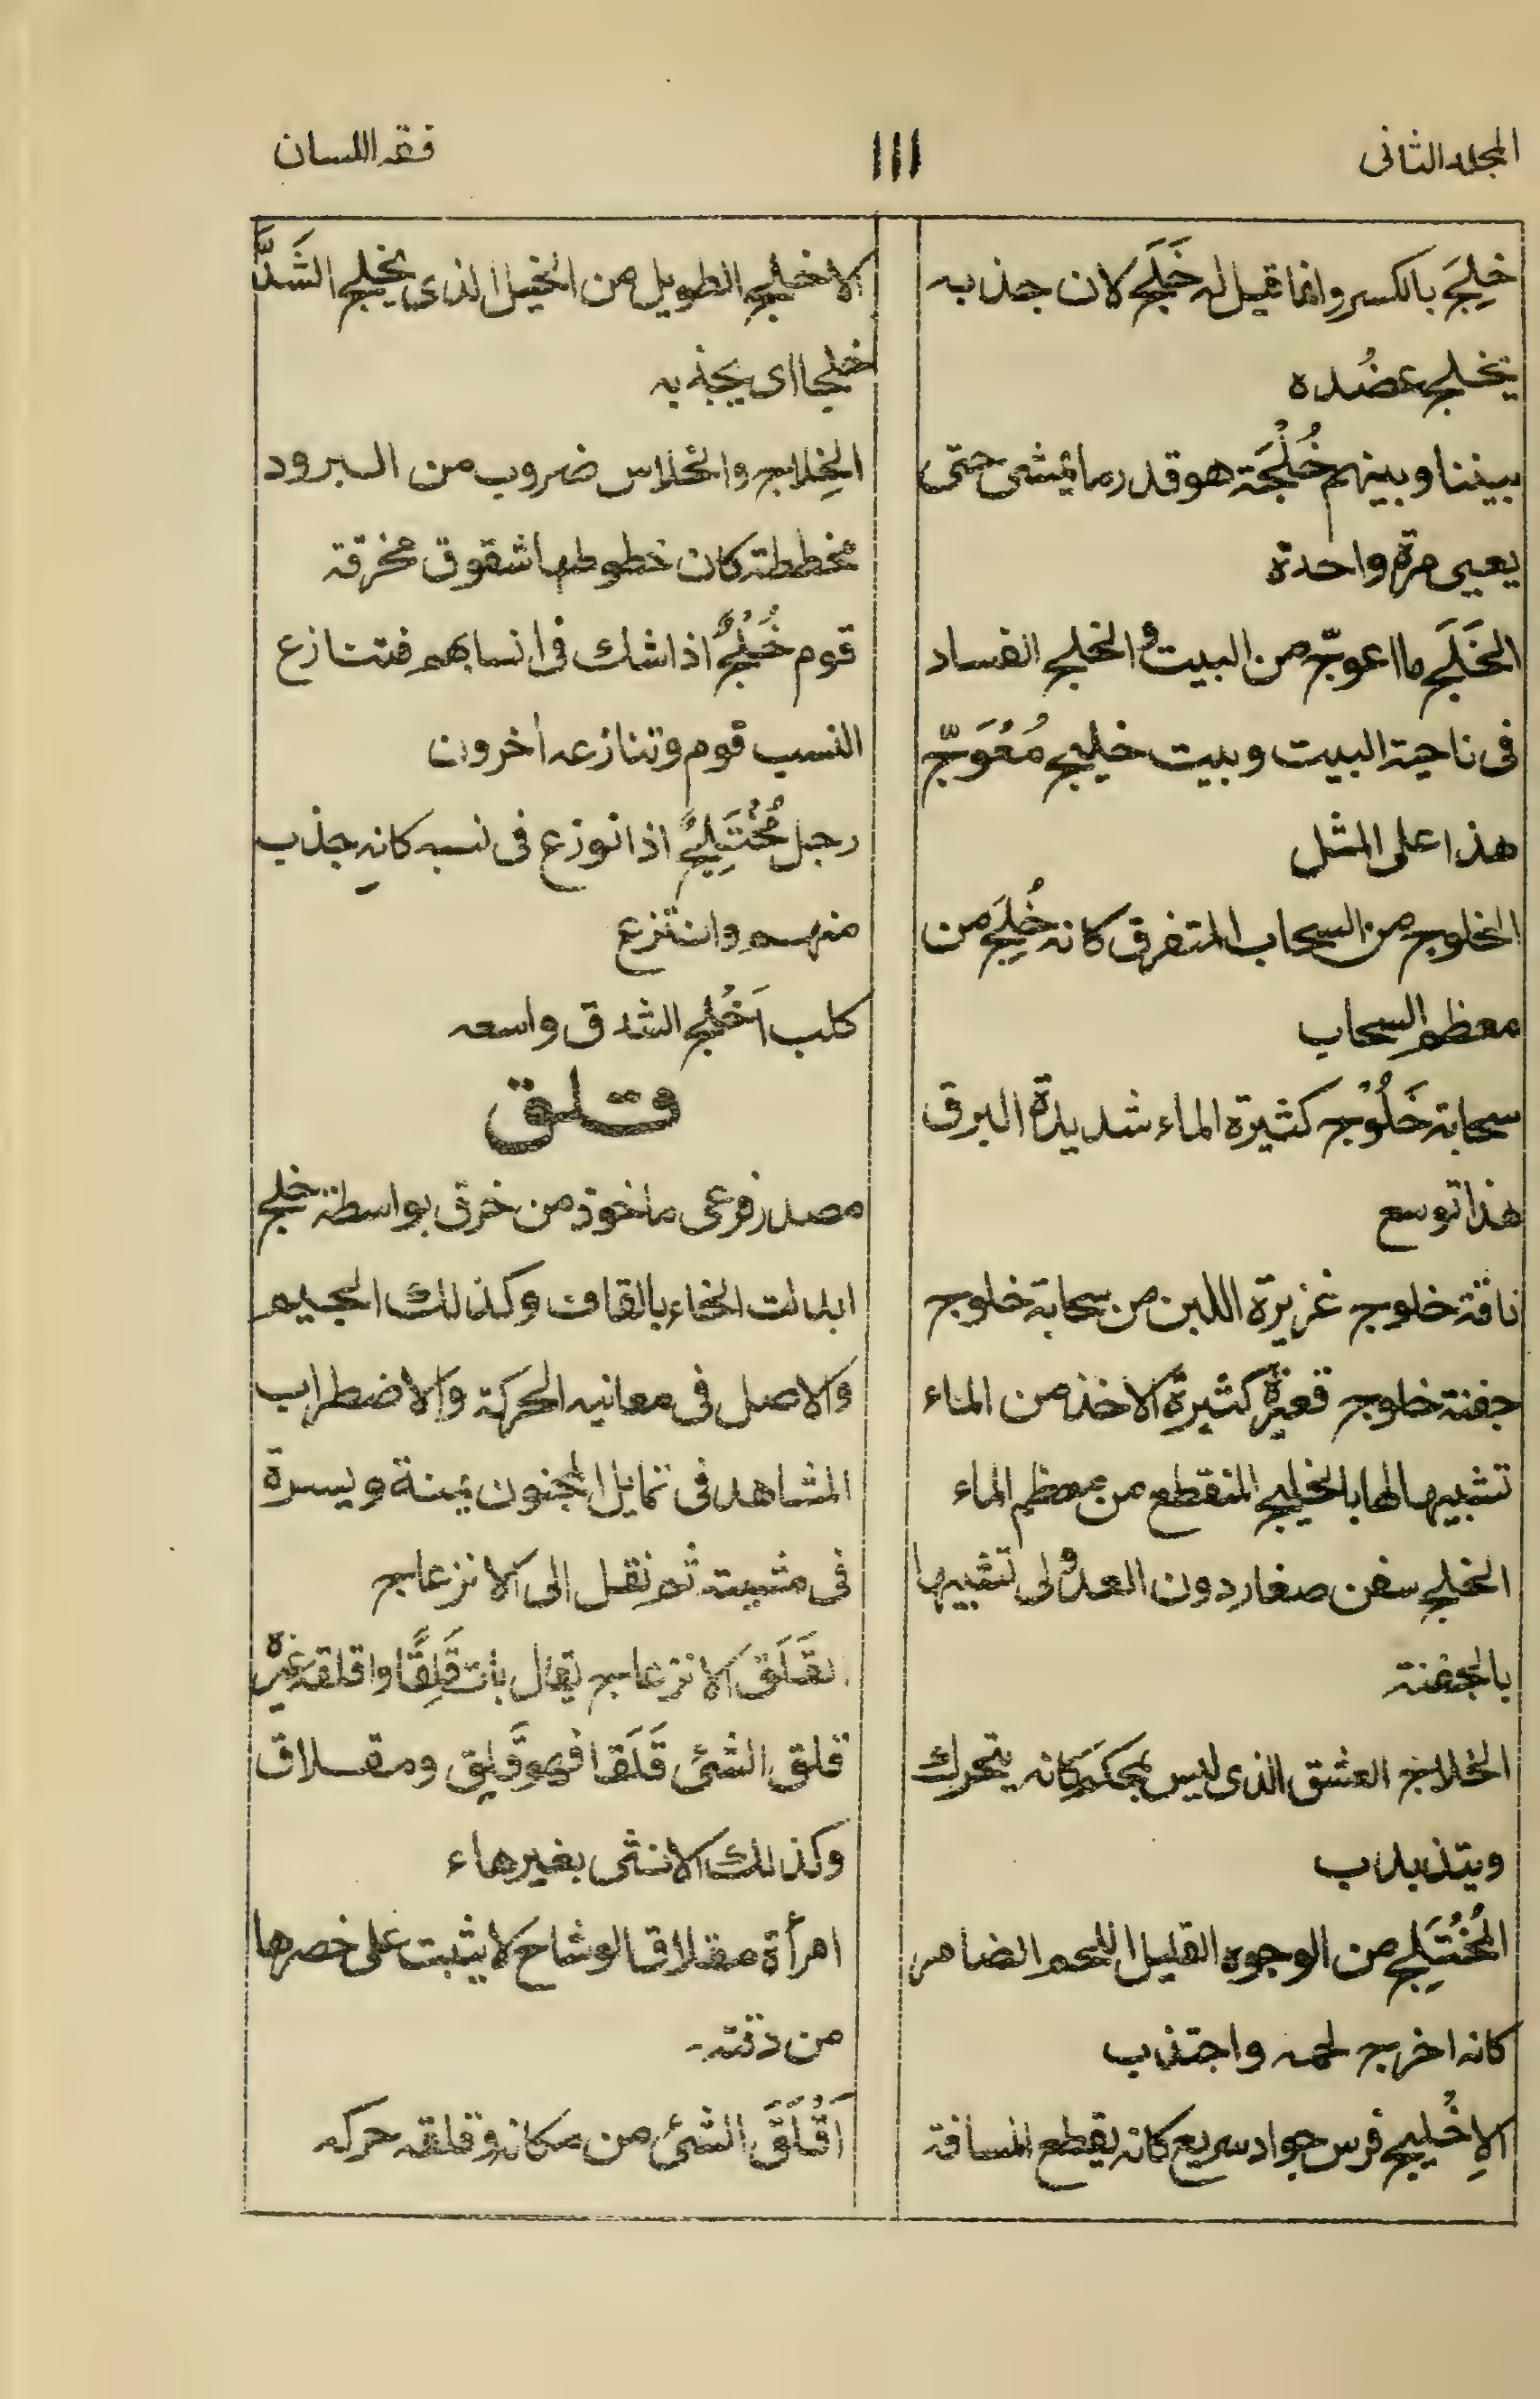 المجلد الثانى
١١١
فقه اللسان
خلِجَ بالكسر وانما قيل له خَلَج لان جذابه
يخلج عضُده
بيننا وبينهم خُلْجَة هو قدر ما يمشى حتى
يعيى مرة واحدة
الخَلَج ما اعوجّ من البيت والخلج الفساد
فى ناحية البيت وبيت خليج مُعْوَجّ
هذا على المثل
الخلوج من السحاب المتفرق كانه خُلِجَ من
معظم السحاب
سحابة خَلُوْج كثيرة الماء شديدة البرق
هذا توسع
ناقة خلوج غزيرة اللبن من سحابة خلوج
جفنة خلوج قعيرة كثيرة الاخذ من الماء
تشبيها لها بالخليج المنقطع من معظم الماء
الخلج سفن صغار دون العدولى تشبيها
بالجفنة
الخلاج العشق الذى ليس بمحكم كانه يتحرك
ويتذبذب
المُخْتَلِج من الوجوه القليل اللحم الضامر
كانه اخرج لحمه واجتذب
الاِخْليج فرس جواد سريع كانه يقطع المسافة
الاخليج الطويل من الخيل الذى يخلج الشَدَّ
خلجا اى يجذبه
الخِلاج والخلاس ضروب من البرود
مخططة كان خطوطها شقوق مخرقة
قوم خُلُجٌ اذا شك فى انسابهم فتنازع
النسب قوم وتنازعه اخرون
رجل مُخْتَلِجٌ اذا نوزع فى نسبه كانه جذب
منهم وانتزع
كلب اَخْلج الشدق واسعه
قلق
مصدر فرعى ماخوذ من خرق بواسطة خلج
ابدلت الخاء بالقاف وكذلك الجيم
والاصل فى معانيه الحركة والاضطراب
المشاهد فى تمايل المجنون يمنة ويسرة
فى مشيته ثم نقل الى الانزعاج
القَلَق الانزعاج يقال بات قَلِقًا واقلقه غيره
قلق الشئ قَلَقا فهو قَلِق ومقلاق
وكذلك الانثى بغير هاء
امرأة مقلاق الوشاح لا يثبت على خصرها
من دقته
اَقْلَقَ الشئ من مكانه وقلقه حركه